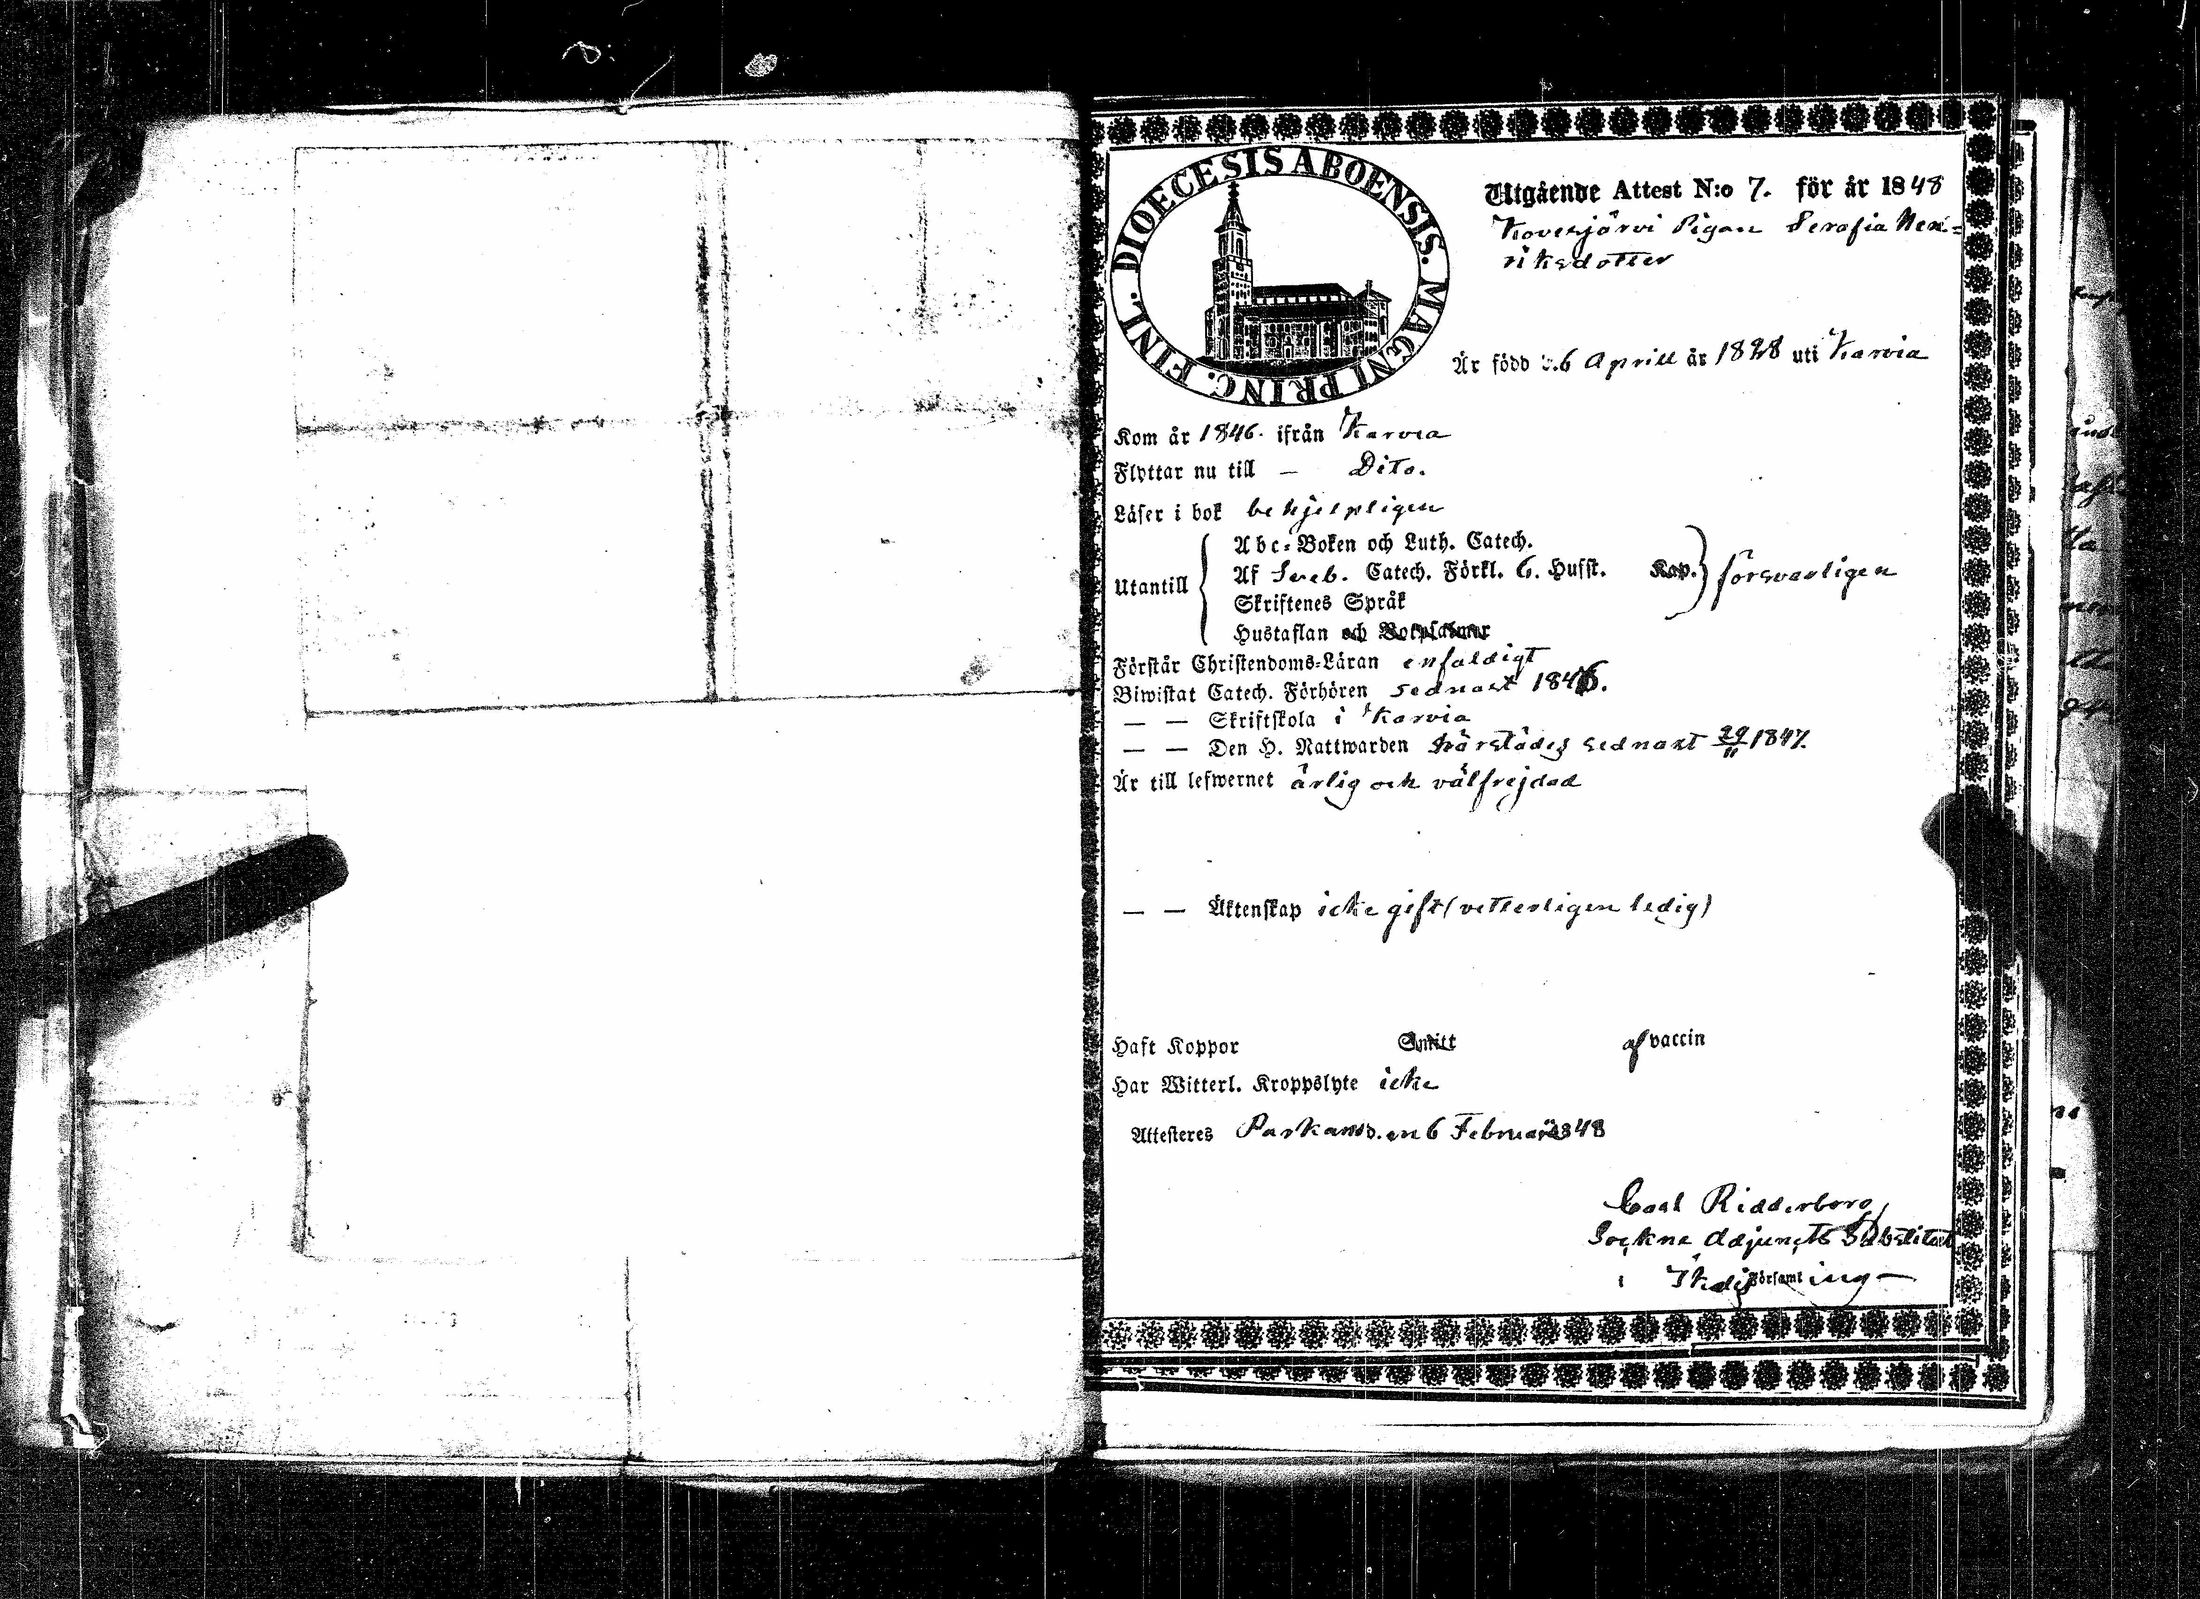 DIOECESIS ABOENSIS. MAGNI PRINC. FINL.
Utgående Attest N:o 7. för år 1848
Kovesjärvi Pigan Serafia Hen=
riksdotter
Är född 26 Aprill år 1828 uti Karvia
Kom år 1846. ifrån Karvia
Flyttar nu till – Dito.
Läser i bok behjelpligen
Utantill
Abc=Boken och Luth. Catech.
Af Sveb. Catech. Förkl. 6. Husst. Kap. försvarligen
Skriftenes Språk
Hustaflan och Botpsalmer
Förstår Christendoms=Läran enfaldigt
Biwistat Catech. Förhören sednast 1846.
— — Skriftskola i Karvia
— — Den H. Nattwarden härstädes sednast 29/11 1847.
Är till lefwernet ärlig och välfrejdad
— — Äktenskap icke gift (vetterligen ledig)
Haft Koppor Smitt af vaccin
Har Witterl. Kroppslyte icke
Attesteres Parkano d. en 6 Februari 1848
Carl Ridderborg
Sockne Adjuncts Substitut
i Ikalis Församling –